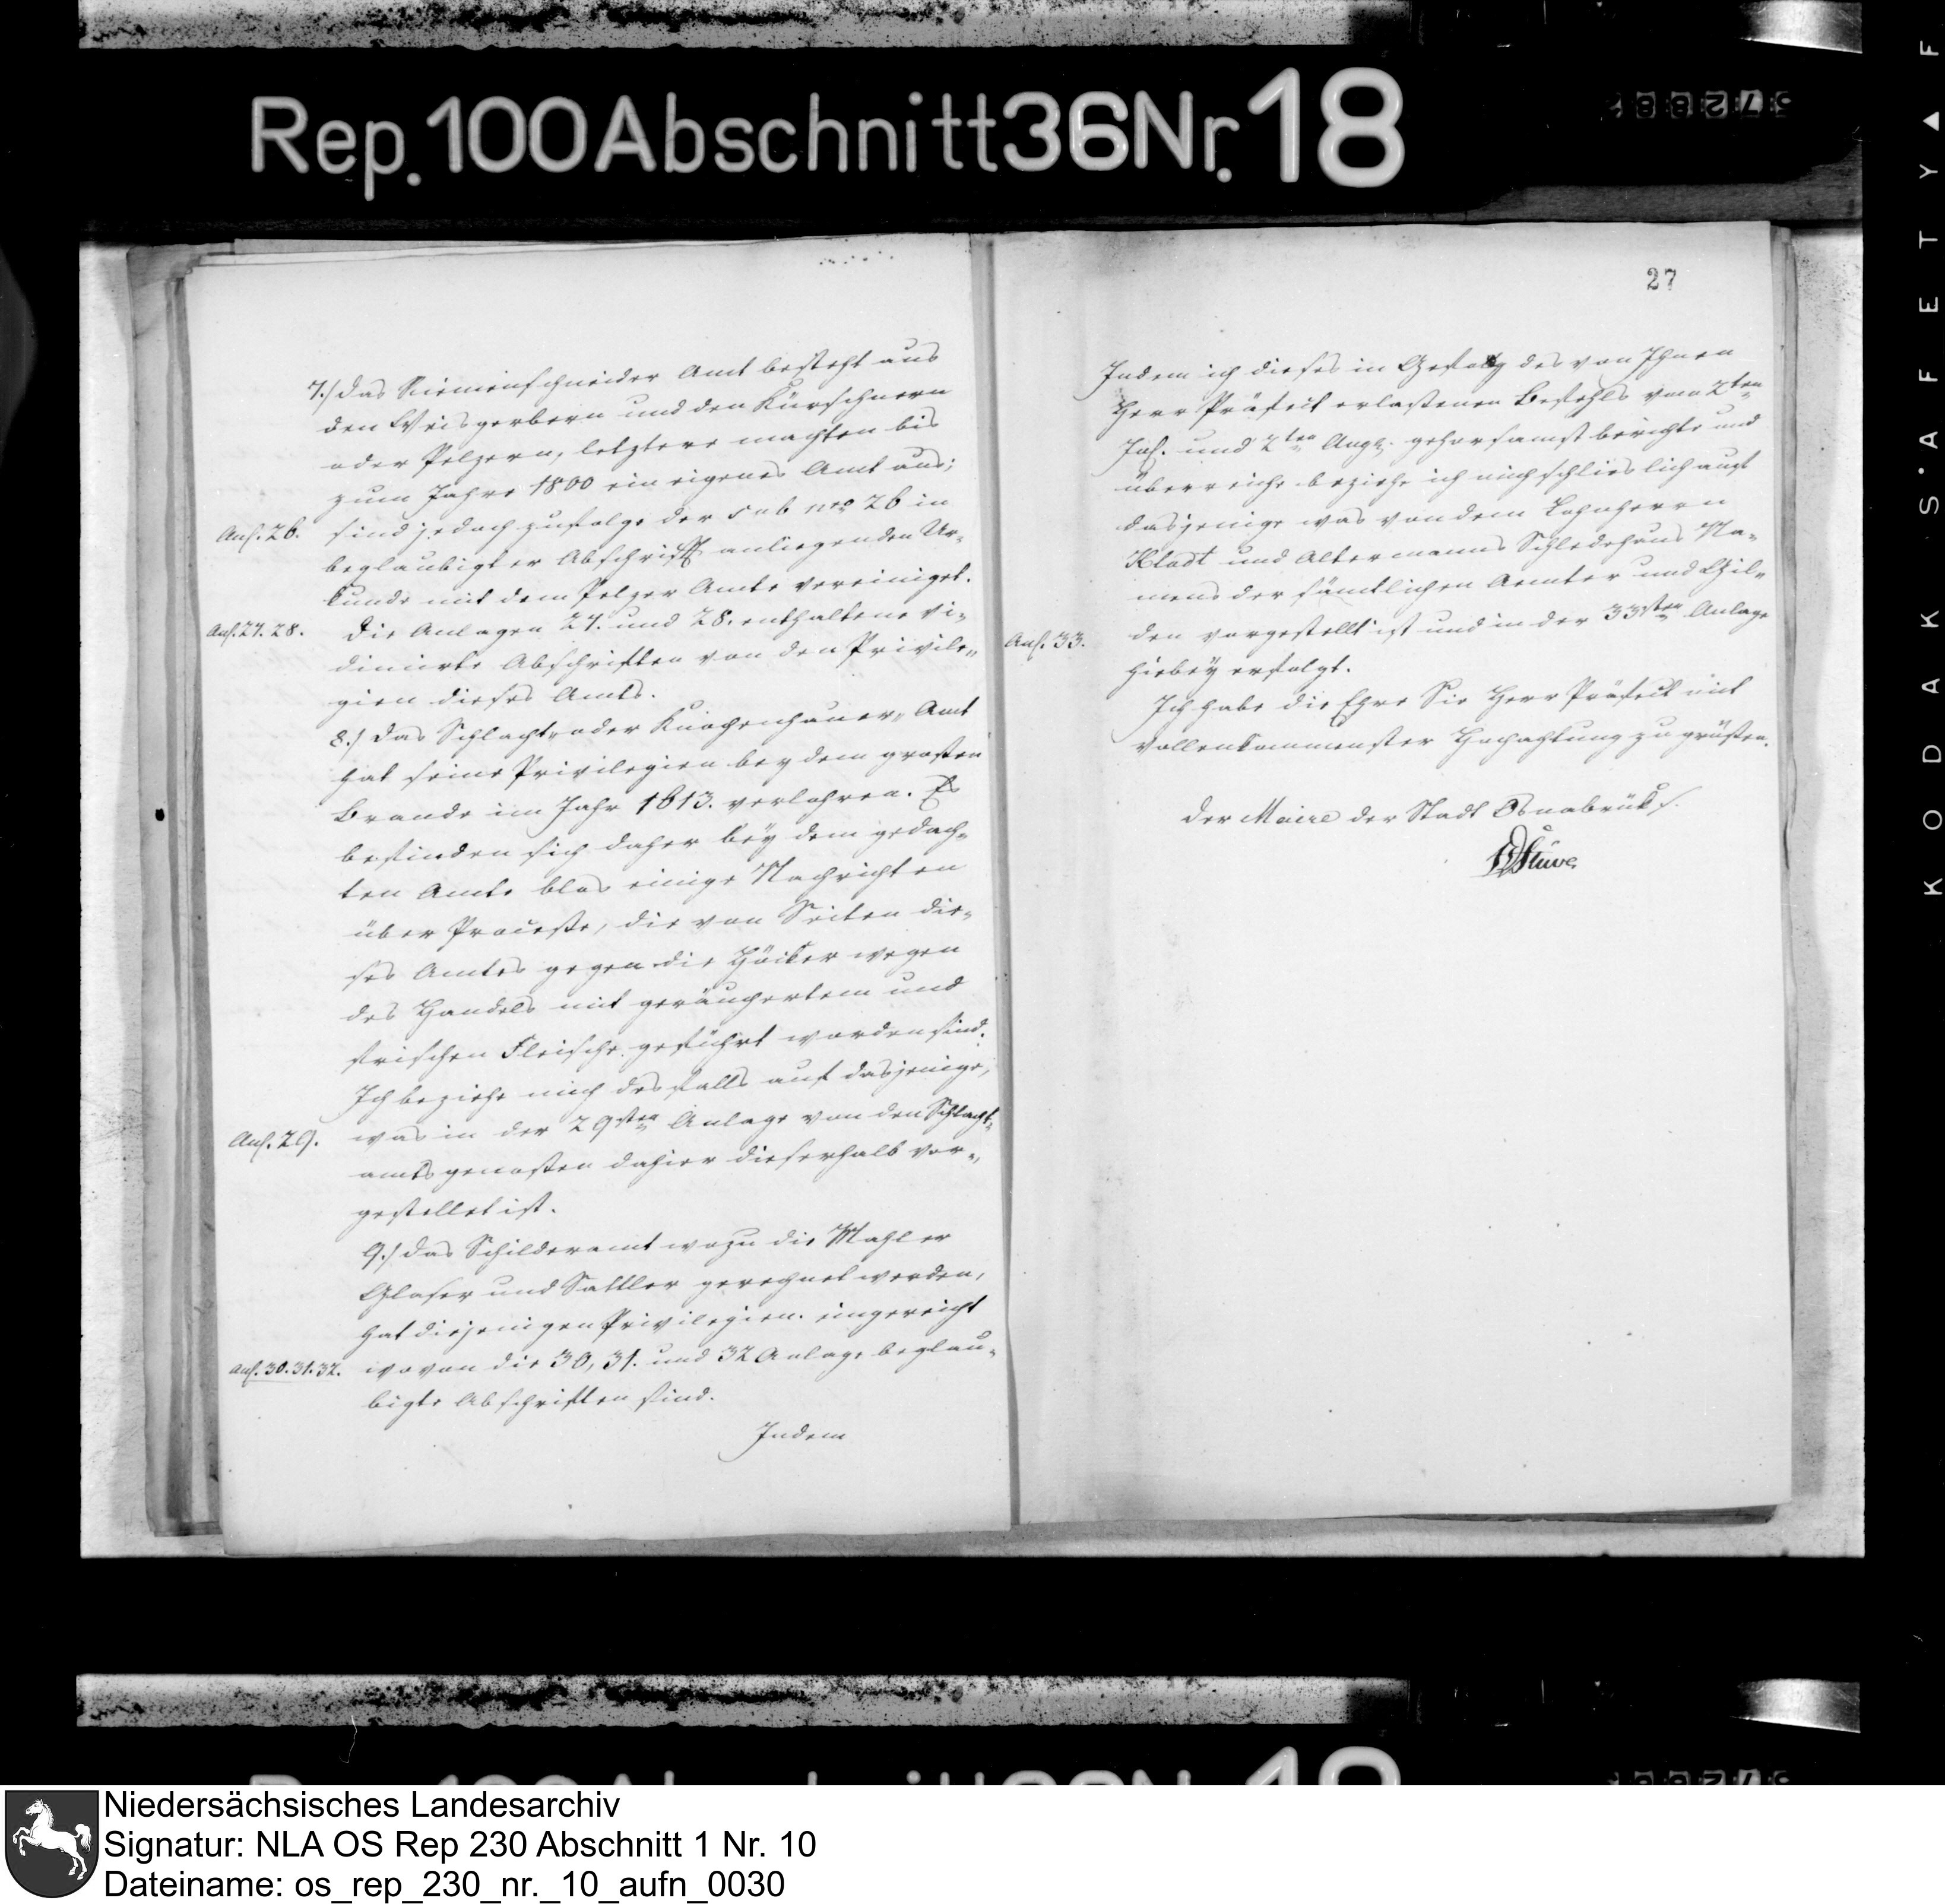 Rep. 100 Abschnitt 36 Nr. 18
7./ Das Riemenschneider Amt besteht aus
den Weisgerbern und den Kürschnern
oder Pelzern, letztere machten bis
zum Jahre 1800 ein eigenes Amt aus;
Anl. 26. sind jedoch zufolge der sub nro 26 in
beglaubigter Abschrift anliegenden Ur-
kunde mit dem Pelzer Amte vereiniget.
Anl. 27. 28. Die Anlagen 27. und 28. enthaltene vi-
dimirte Abschriften von den Privile-
gien dieses Amts.
8./ Das Schlacht- oder Knochenhauer- Amt
hat seine Privilegien bey dem grosten
Brande im Jahr 1613. verlohren. Es
befinden sich daher bey dem gedach-
ten Amte blos einige Nachrichten
über Processe, die von Seiten die-
ses Amtes gegen die Höcker wegen
des Handels mit geräuchertem und
frischen Fleische geführt worden sind.
Ich beziehe mich desfalls auf dasjenige,
Anl. 29. was in der 29sten Anlage von den Schlacht-
amtsgenossen dahier dieserhalb vor-
gestellet ist.
9./ Das Schilderamt wozu die Mahler
Glaser und Sattler gerechnet werden,
hat diejenigen Privilegien eingereicht
Anl. 30. 31. 32. wovon die 30, 31. und 32 Anlage beglau-
bigte Abschriften sind.
Indem
27
Indem ich dieses in Gefolg des von Ihnen
Herr Präfect erlassenen Befehls vom 2ten
und 2ten Aug. gehorsamst berichte und
überreiche beziehe ich mich schlieslich auf
dasjenige was von dem Lohnherrn
Kladt und Altermanns Schledehaus Na-
mens der sämtlichen Aemter und Gil-
Anl. 33. den vorgestellt ist und in der 33sten Anlage
hiebey erfolgt.
Ich habe die Ehre Sie Herr Präfect mit
vollenkommenster Hochachtung zu grüßen.
Der Maire der Stadt Osnabrück
Stüve
KODAK S·AFETY▲F
Niedersächsisches Landesarchiv
Signatur: NLA OS Rep 230 Abschnitt 1 Nr. 10
Dateiname: os_rep_230_nr._10_aufn_0030